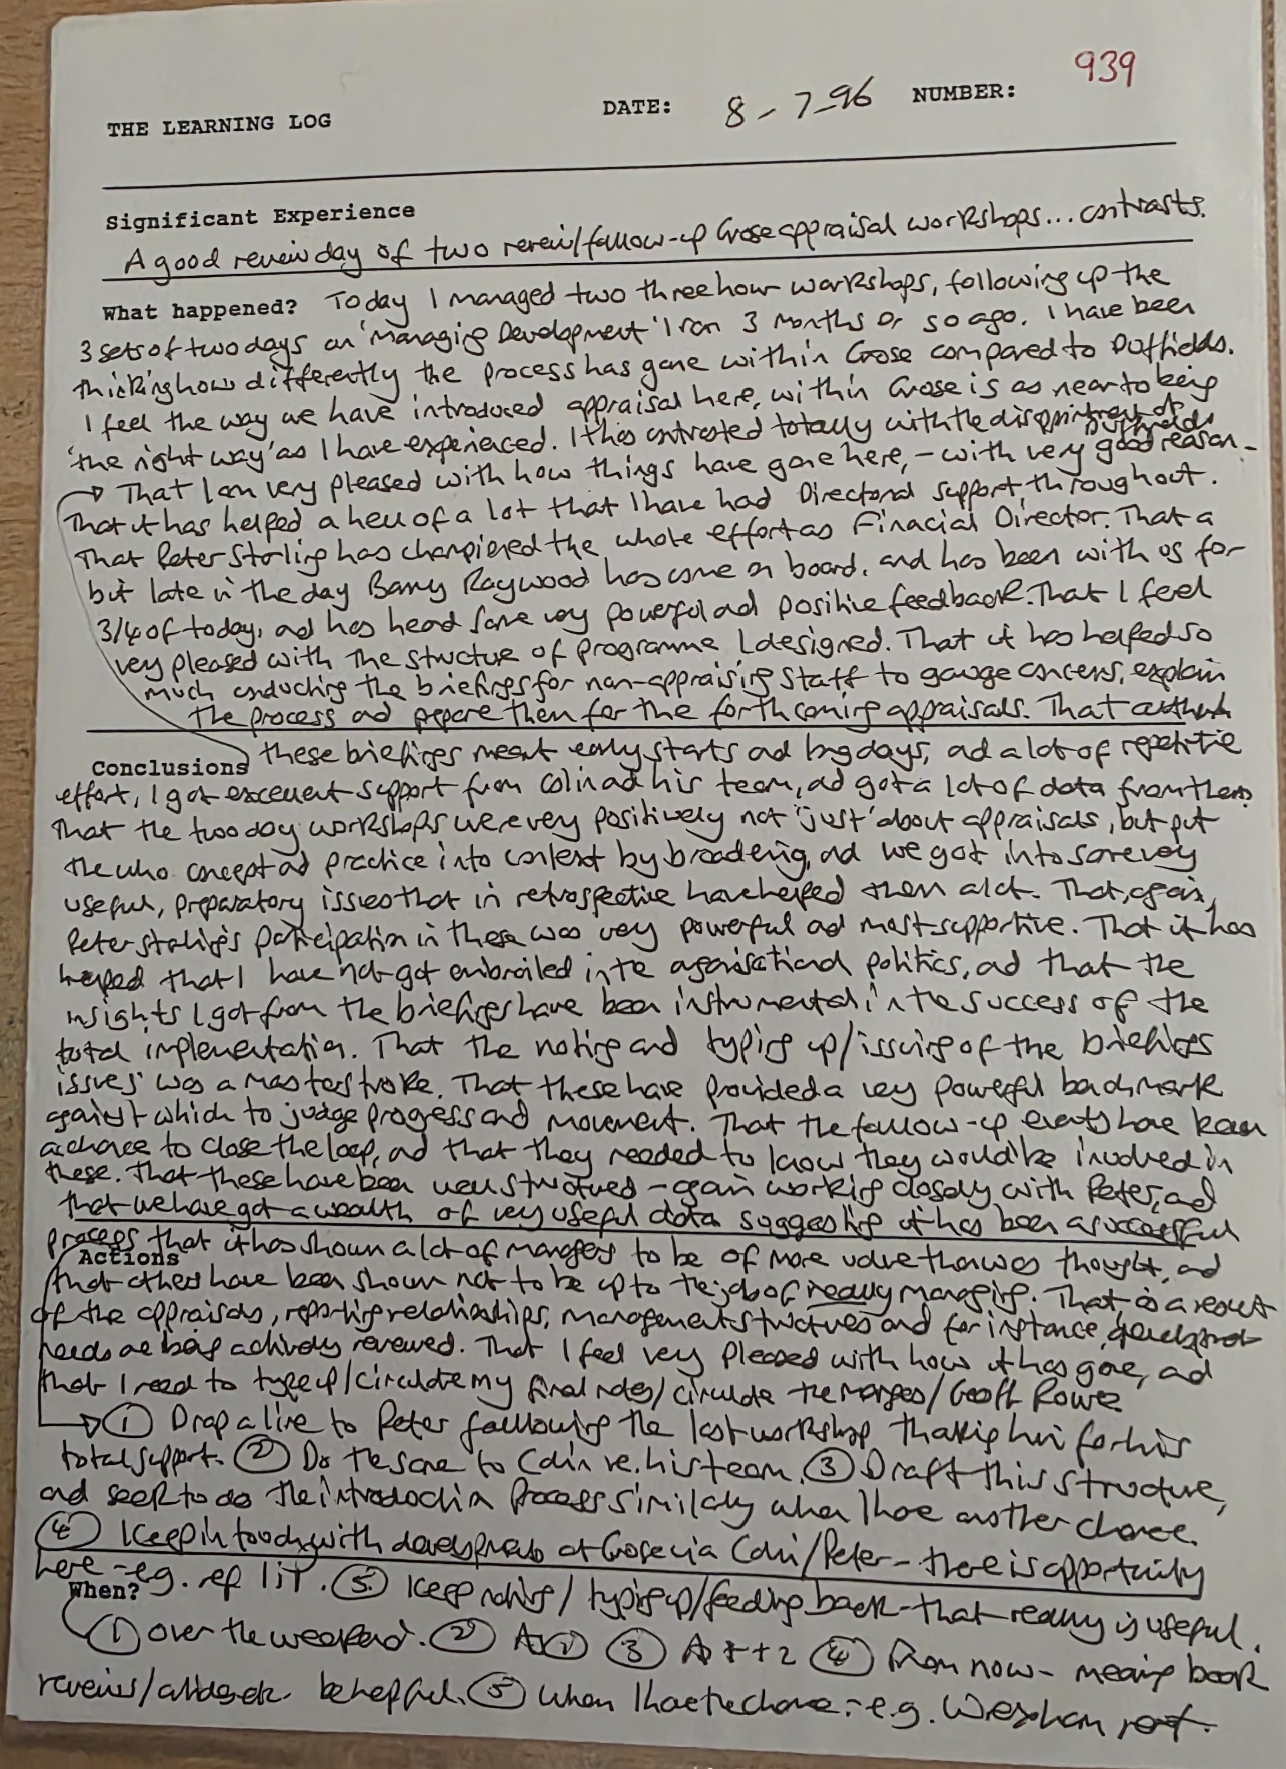 939
THE LEARNING LOG DATE: 8-7-96 NUMBER:
Significant Experience
A good review day of two review/follow-up Crose appraisal workshops... contrasts.
What happened? Today I managed two three hour workshops, following up the
3 sets of two days on 'Managing Development' I ran 3 months or so ago. I have been
thinking how differently the process has gone within Crose compared to Duffields.
I feel the way we have introduced appraisal here, within Crose is as near to being
'the right way' as I have experienced. This contrasted totally with the disappointment of Duffields
That I am very pleased with how things have gone here, - with very good reason -
That it has helped a hell of a lot that I have had Directoral support, throughout.
That Peter Storling has championed the whole effort as Finacial Director. That a
bit late in the day Barry Raywood has come on board, and has been with us for
3/4 of today, ad has head some very powerful ad positive feedback. That I feel
very pleased with the structure of programme I designed. That it has helped so
much conducting the briefings for non-appraising staff to gauge concerns, explain
the process ad prepare them for the forthcoming appraisals. That
Conclusions these briefings meant early starts ad big days, ad a lot of repetitive
effort, I got excellent support from Colin ad his team, ad got a lot of data from them.
That the two day workshops were very positively not 'just' about appraisals, but put
the who concept ad practice into context by broadening, ad we got into some very
useful, preparatory issues that in retrospective have helped them a lot. That, again,
Peter Storling's participation in these was very powerful ad most supportive. That it has
helped that I have not got embroiled in te organisational politics, ad that the
insights I got from the briefings have been instrumental in te success of the
total implementation. That the noting and typing up/issuing of the briefings
issues was a masterstroke. That these have provided a very powerful bench mark
against which to judge progress and movement. That the follow-up events have been
a chance to close the loop, ad that they needed to know they would be involved in
these. That these have been well structured - again working closely with Peter, ad
that we have got a wealth of very useful data suggesting it has been a successful
process that it has shown a lot of managers to be of more value than was thought, ad
Actions
that others have been shown not to be up to the job of really managing. That, as a result
of the appraisals, reporting relationships, management structures and for instance, development
needs are being actively reviewed. That I feel very pleased with how it has gone, ad
that I need to type up/circulate my final notes/circulate the manages/Geoff Rowe
① Drop a line to Peter following the last workshop thanking him for his
total support. ② Do the same to Colin re. his team. ③ Draft this structure,
and seek to do the introduction process similarly when I have another chance.
④ Keep in touch with developments at Crose via Colin/Peter - there is opportunity
here - eg. ref lit. ⑤ Keep noting/typing up/feeding back - that really is useful.
When?
① over the weekend. ② As ① ③ As ++2 ④ From now - meaning book
reviews/ be helpful. ⑤ When I have the chance - e.g. Wrexham